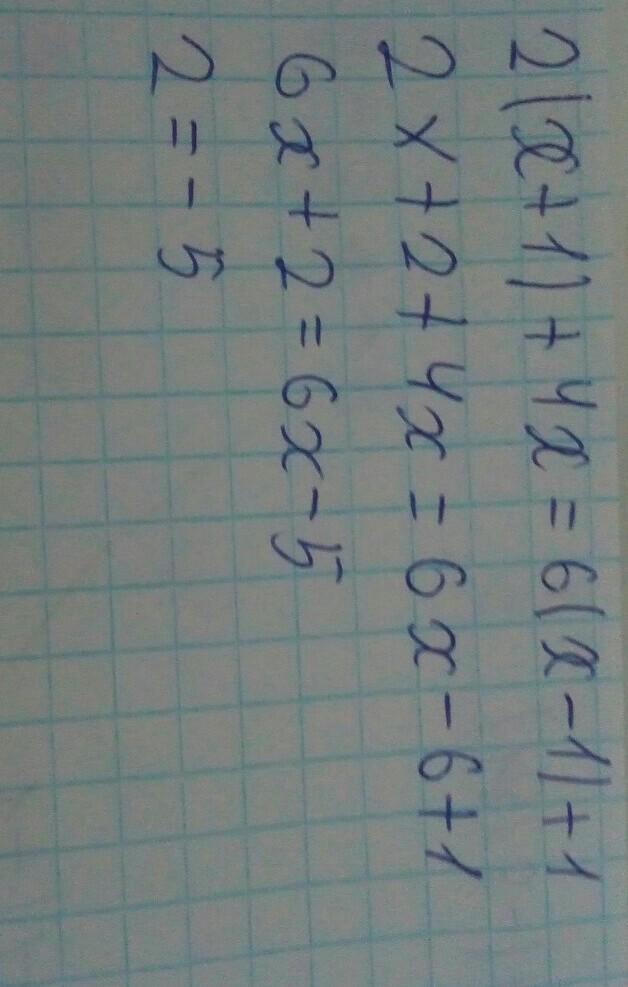 2(x+1)+4x=6(x-1)+1
2x+2+4x=6x-6+1
6x+2=6x-5
2=-5